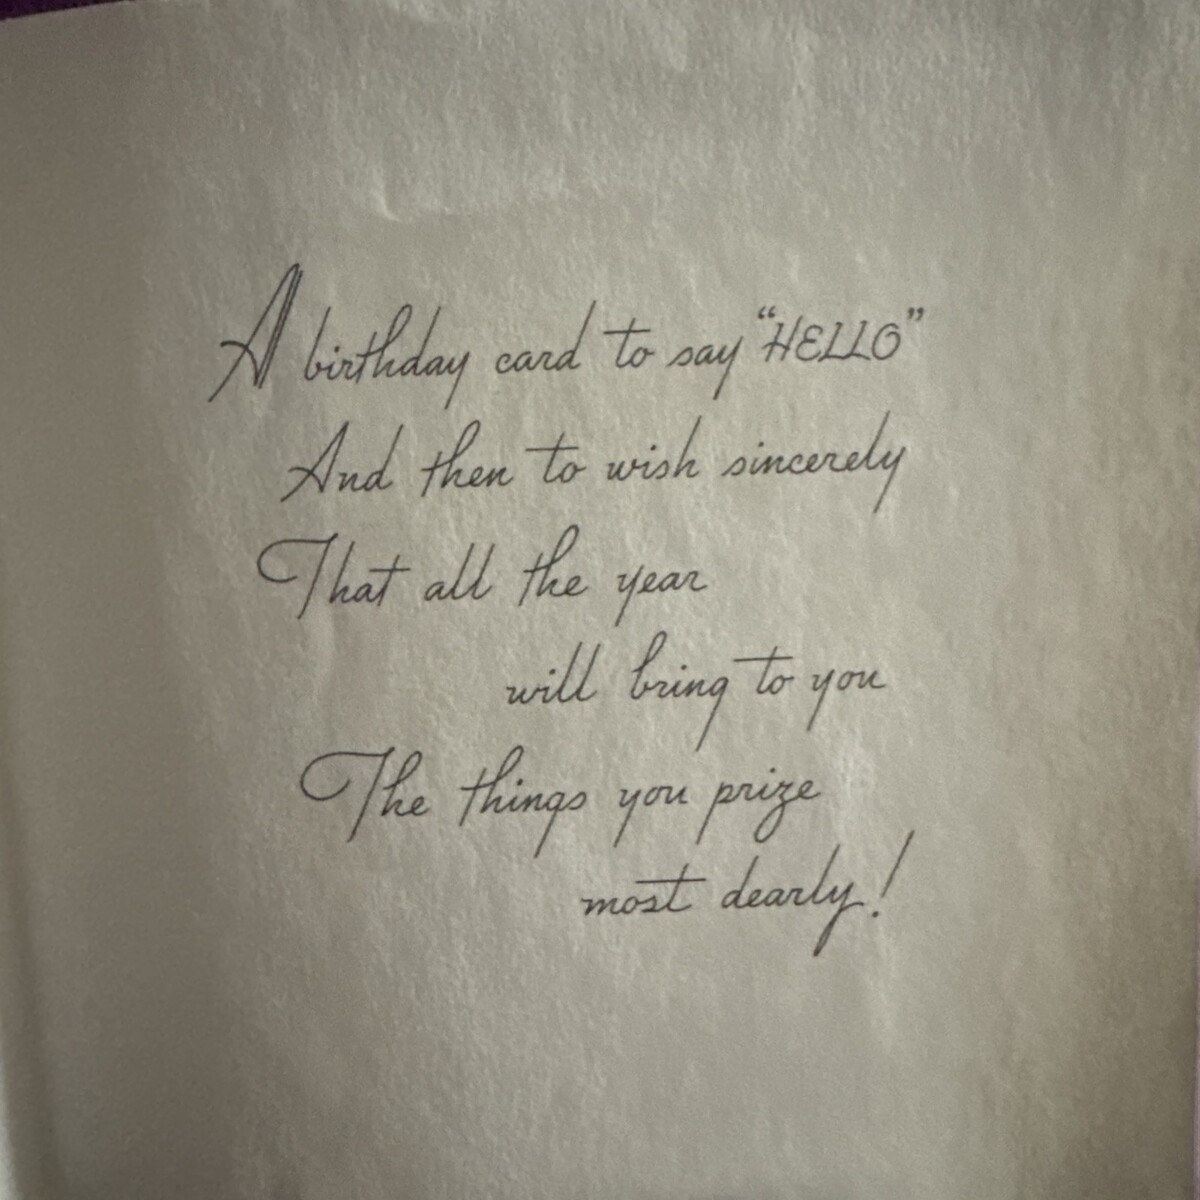 A birthday card to say “HELLO”
And then to wish sincerely
That all the year
will bring to you
The things you prize
most dearly!